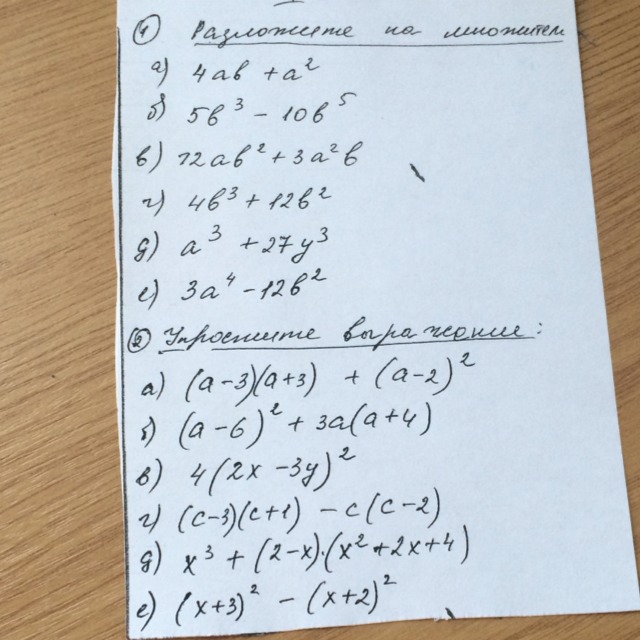 ④ Разложите на множители
а) 4ab + a²
б) 5b³ – 10b⁵
в) 12ab² + 3a²b
г) 4b³ + 12b²
д) a³ + 27y³
е) 3a⁴ – 12b²
⑤ Упростите выражение:
а) (a – 3)(a + 3) + (a – 2)²
б) (a – 6)² + 3a(a + 4)
в) 4(2x – 3y)²
г) (c – 3)(c + 1) – c(c – 2)
д) x³ + (2 – x)·(x² + 2x + 4)
е) (x + 3)² – (x + 2)²